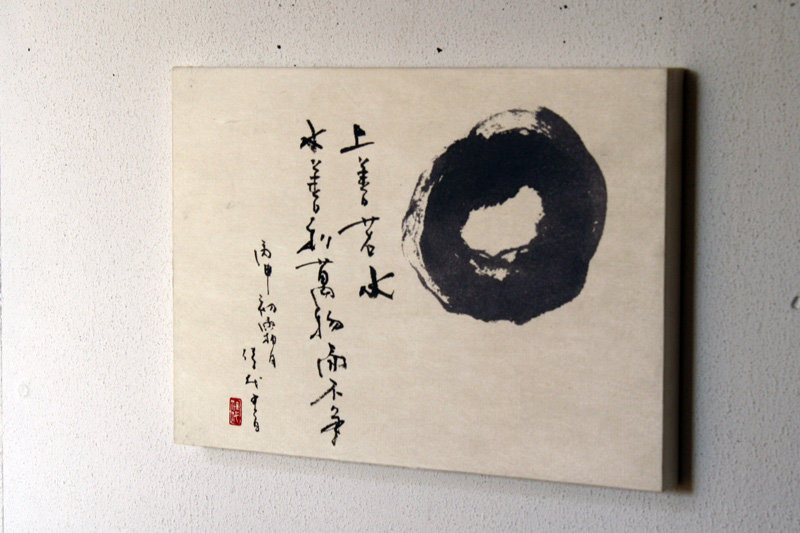 上善若水
水善利萬物而不爭
丙申初霜月